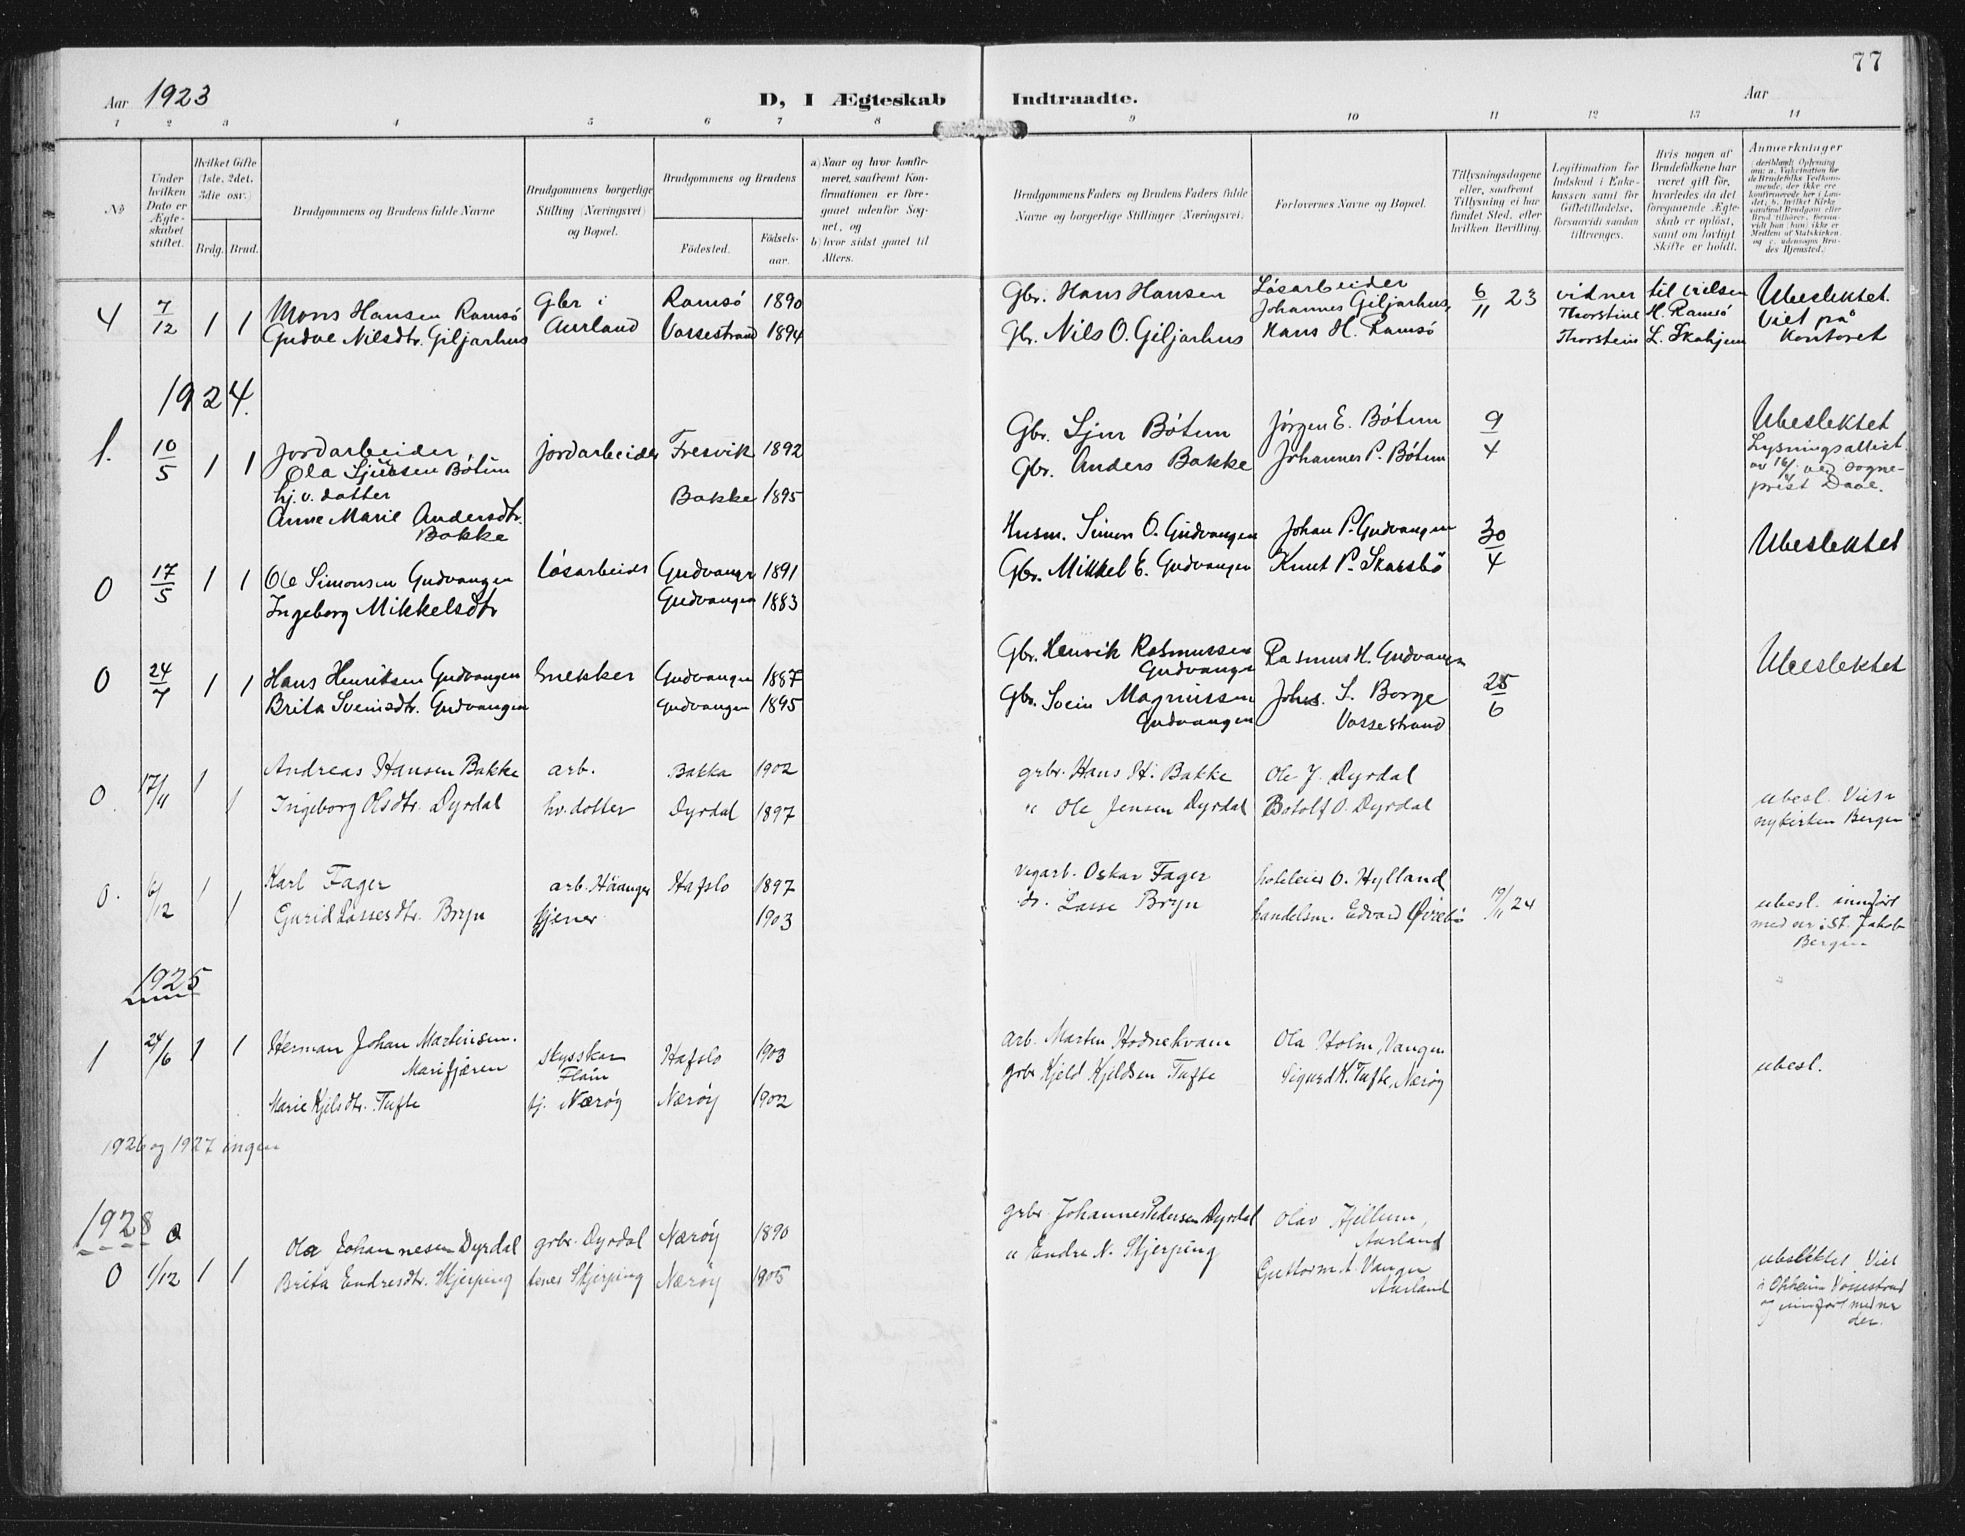 77
Aar 1923
D, I Ægteskab Indtraadte.
Aar
1 2 3 4 5 6 7 8 9 10 11 12 13 14
No
Under hvilken Dato er Ægteskabet stiftet.
Hvilket Gifte (1ste, 2det, 3die osv.)
Brdg. Brud.
Brudgommens og Brudens fulde Navne
Brudgommens borgerlige Stilling (Næringsvei) og Bopæl.
Brudgommens og Brudens
Fødested. Fødselsaar.
a) Naar og hvor konfirmeret, saafremt Konfirmationen er foregaaet udenfor Sognet, og
b) hvor sidst gaaet til Alters.
Brudgommens Faders og Brudens Faders fulde Navne og borgerlige Stillinger (Næringsvei).
Forlovernes Navne og Bopæl.
Tillysningsdagene eller, saafremt Tillysning ei har fundet Sted, efter hvilken Bevilling.
Legitimation for Indskud i Enkekassen samt for Giftetilladelse, forsaavidt saadan tiltrænges.
Hvis nogen af Brudefolkene har været gift før, hvorledes da det foregaaende Ægteskab er opløst, samt om lovligt Skifte er holdt.
Anmærkninger
4 7/12 1 1 Mons Hansen Ramsö Gbr i Aurland Ramsö 1890 Gbr. Hans Hansen Løsarbeider Johannes Giljarhus, 6/11 23 vidner til vielsen Ubeslektet.
Gudve Nilsdtr. Giljarhus Vossestrand 1894 Gbr. Nils O. Giljarhus Hans H. Ramsö Thorstine H. Ramsö Viet på
Thorstein L. Skahjem Kontoret
1924.
1. 10/5 1 1 Jordarbeider jordarbeider Fresvik 1892 Gbr. Sjur Bøtun Jørgen E. Bøtun 9/4 Ubeslektet
Ola Sjursen Bøtun Gbr. Anders Bakke Johannes P. Bøtun Lysningsattest
hj.v. datter Bakke 1895 ved sogne-
Anne Marie Andersdtr. prest Daae.
Bakke
0 17/5 1 1 Ole Simonsen Gudvangen løsarbeider Gudvangen 1891 Husm. Simon O. Gudvangen Johan P. Gudvangen 30/4 Ubeslektet
Ingeborg Mikkelsdtr Gudvangen 1883 Gbr. Mikkel E. Gudvangen Knut P. Skarsbø
0 24/7 1 1 Hans Henriksen Gudvangen Snekker Gudvangen 1887 Gbr. Henrik Rasmussen Gudvangen Rasmus H. Gudvangen 25/6 Ubeslektet
Brita Sveinsdtr. Gudvangen Gudvangen 1895 Gbr. Svein Magnussen Gudvangen Johs. S. Borge Vossestrand
0. 17/11 1 Andreas Hansen Bakke arb. Bakka 1902 grbr. Hans H. Bakke Ole J. Dyrdal
1 Ingeborg Olsdtr. Dyrdal hv. dotter Dyrdal 1897 " Ole Jensen Dyrdal Botolf O. Dyrdal ubesl. Viet i
nykirken Bergen
0. 6/12 1 Karl Fager arb. Höanger Hafslo 1897 vegarb. Oskar Fager hoteleier O. Hylland
1 Gurid Lassesdtr. Bryn tjener 1903 Lasse Bryn handelsm. Edvard Øvrebø 19/11 24 ubesl. innført
med nr i St. Jakob
Bergen
1925
1 24/6 1 1 Herman Johan Martinsen skysskar Hafslo 1903 arb. Marten Hodnekvam Ola Holm, Vangen
Marifjæren Flåm grbr Kjeld Kjeldsen Tufte Sigurd K. Tufte, Nærøy ubesl.
Marie Kjelsdtr. Tufte tj. Nærøy Nærøy 1902
1926 og 1927 ingen
1928
0 Ola Johannesen Dyrdal grbr. Dyrdal Nærøy 1890 grbr. Johannes Pedersen Dyrdal Olav Hjellum, Aurland
0 1/12 1 1 Brita Endresdtr. Skjerping Skjerping Nærøy 1905 " Endre N. Skjerping Guttorm A. Vangen Aurland ubeslektet. Viet
i Oppheim Vossestrand
og innført med nr
der.